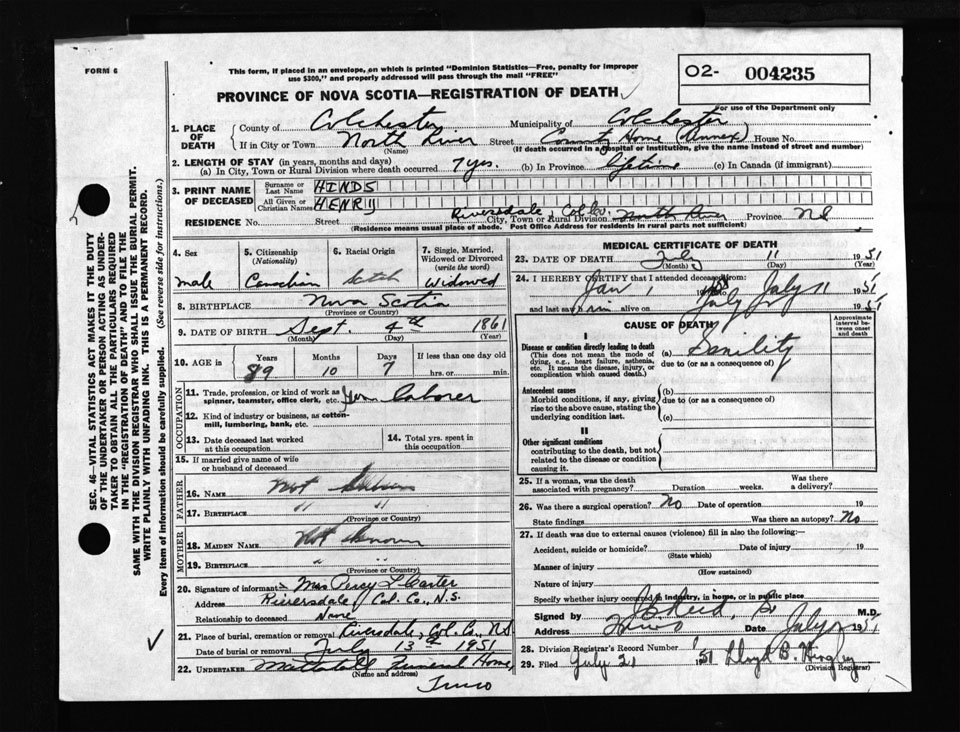 FORM 6
This form, if placed in an envelope, on which is printed "Dominion Statistics—Free, penalty for improper
use $300," and properly addressed will pass through the mail "FREE"
O2- 004235
For use of the Department only
PROVINCE OF NOVA SCOTIA—REGISTRATION OF DEATH
1. PLACE OF DEATH
County of Colchester Municipality of Colchester
If in City or Town North River Street County Home (Annex) House No.
(Name) (If death occurred in a hospital or institution, give the name instead of street and number)
2. LENGTH OF STAY (in years, months and days)
(a) In City, Town or Rural Division where death occurred 7 yrs. (b) In Province lifetime (c) In Canada (if immigrant)
3. PRINT NAME OF DECEASED
Surname or Last Name HINDS
All Given or Christian Names HENRY
Riversdale Col. Co.
RESIDENCE No. Street City, Town or Rural Division North River Province N.S.
(Residence means usual place of abode. Post Office Address for residents in rural parts not sufficient)
4. Sex male
5. Citizenship (Nationality) Canadian
6. Racial Origin Scotch
7. Single, Married, Widowed or Divorced (write the word) Widowed
8. BIRTHPLACE Nova Scotia
(Province or Country)
9. DATE OF BIRTH Sept. 4th 1861
(Month) (Day) (Year)
10. AGE in Years Months Days If less than one day old
89 10 7 hrs. or min.
OCCUPATION
11. Trade, profession, or kind of work as
spinner, teamster, office clerk, etc. Gen laborer
12. Kind of industry or business, as cotton-
mill, lumbering, bank, etc.
13. Date deceased last worked
at this occupation
14. Total yrs. spent in
this occupation
15. If married give name of wife
or husband of deceased
FATHER
16. NAME Not known
17. BIRTHPLACE " "
(Province or Country)
MOTHER
18. MAIDEN NAME Not known
19. BIRTHPLACE " "
(Province or Country)
20. Signature of informant Mrs Percy L Carter
Address Riversdale Col. Co., N.S.
Relationship to deceased None
21. Place of burial, cremation or removal Riversdale, Col. Co., N.S.
Date of burial or removal July 13th 1951
22. UNDERTAKER Funeral Home,
(Name and address)
Truro
MEDICAL CERTIFICATE OF DEATH
23. DATE OF DEATH July 11 1951
(Month) (Day) (Year)
24. I HEREBY CERTIFY that I attended deceased from:
Jan 1 July 11 1951
and last saw him alive on July 1951
CAUSE OF DEATH
Approximate interval between onset and death
I
Disease or condition directly leading to death
(This does not mean the mode of
dying, e.g., heart failure, asthenia,
etc. It means the disease, injury, or
complication which caused death.)
(a) Senility
due to (or as a consequence of)
Antecedent causes
Morbid conditions, if any, giving
rise to the above cause, stating the
underlying condition last.
(b)
due to (or as a consequence of)
(c)
II
Other significant conditions
contributing to the death, but not
related to the disease or condition
causing it.
25. If a woman, was the death
associated with pregnancy? Duration weeks. Was there a delivery?
26. Was there surgical operation? No Date of operation 19
State findings Was there an autopsy? No
27. If death was due to external causes (violence) fill in also the following:—
Accident, suicide or homicide? Date of injury 19
(State which)
Manner of injury
(How sustained)
Nature of injury
Specify whether injury occurred in industry, in home, or in public place
Signed by M.D.
Address Truro Date July 1951
28. Division Registrar's Record Number
29. Filed July 21 1951 Lloyd B.
(Division Registrar)
SEC. 46—VITAL STATISTICS ACT MAKES IT THE DUTY
OF THE UNDERTAKER OR PERSON ACTING AS UNDER-
TAKER TO OBTAIN ALL THE PARTICULARS REQUIRED
IN THE "REGISTRATION OF DEATH" AND TO FILE THE
SAME WITH THE DIVISION REGISTRAR WHO SHALL ISSUE THE BURIAL PERMIT.
WRITE PLAINLY WITH UNFADING INK. THIS IS A PERMANENT RECORD.
Every item of information should be carefully supplied. (See reverse side for instructions.)